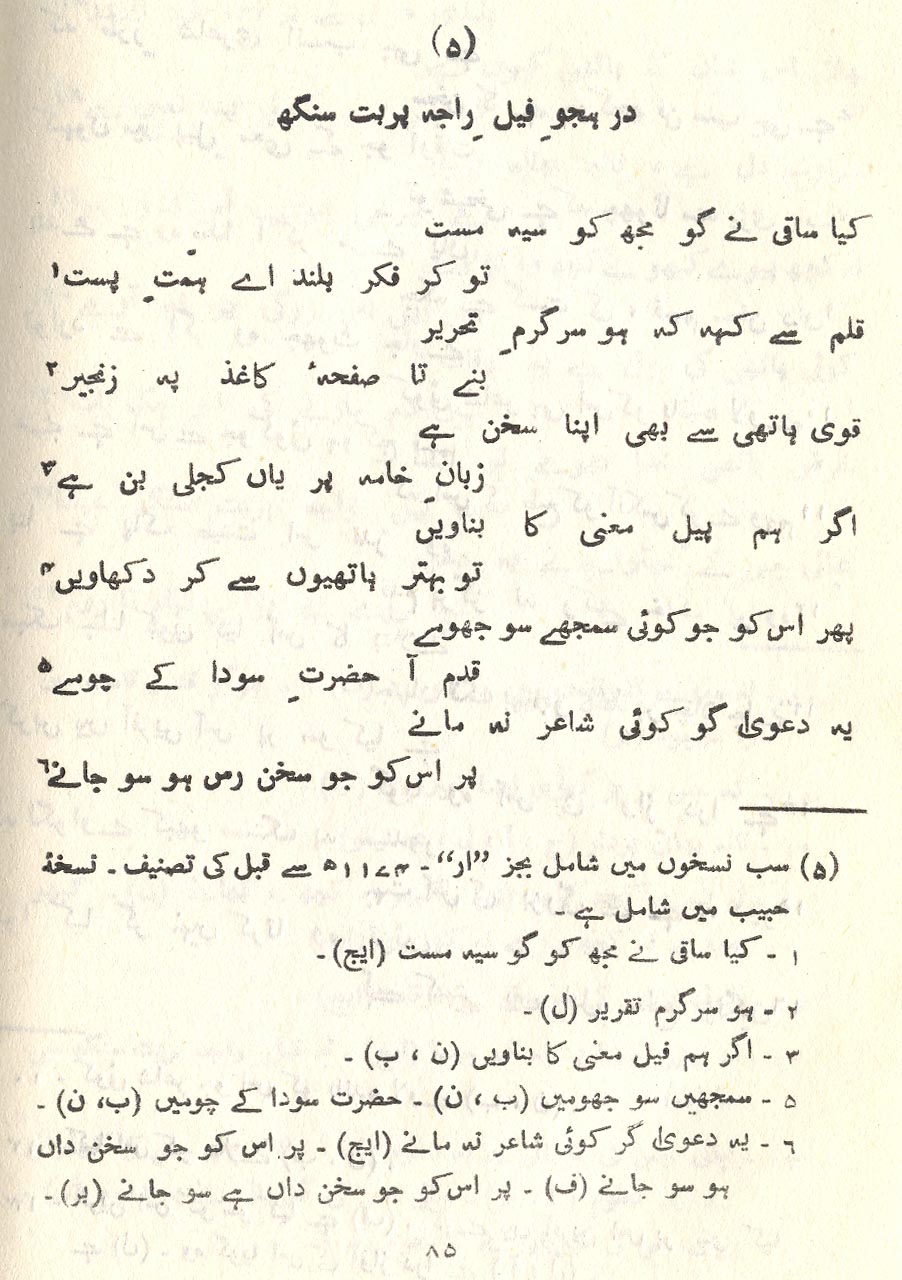 (۵)
در ہجوِ فیلِ راجہ پربت سنگھ
کیا ساقی نے گو مجھ کو سیہ مست
تو کر فکر بلند اے ہمّتِ پست۱
قلم سے کہہ کہ ہو سرگرمِ تحریر
بنے تا صفحۂ کاغذ پہ زنجیر۲
قوی ہاتھی سے بھی اپنا سخن ہے
زبانِ خامہ پر یاں کجلی بن ہے۳
اگر ہم پیل معنی کا بناویں
تو بہتر ہاتھیوں سے کر دکھاویں۴
پھر اس کو جو کوئی سمجھے سو جھومے
قدم آ حضرتِ سودا کے چومے۵
یہ دعویٰ گو کوئی شاعر نہ مانے
پر اس کو جو سخن رس ہو سو جانے۶
(۵) سب نسخوں میں شامل بجز ”ار“ ۔ ۱۱۷۴ھ سے قبل کی تصنیف ۔ نسخۂ
حبیب میں شامل ہے ۔
۱ ۔ کیا ساقی نے مجھ کو گو سیہ مست (ایچ) ۔
۲ ۔ ہو سرگرم تقریر (ل) ۔
۳ ۔ اگر ہم فیل معنی کا بناویں (ن ، ب) ۔
۵ ۔ سمجھیں سو جھومیں (ب ، ن) ۔ حضرت سودا کے چومیں (ب، ن) ۔
۶ ۔ یہ دعویٰ گر کوئی شاعر نہ مانے (ایچ) ۔ پر اس کو جو سخن داں
ہو سو جانے (ف) ۔ پر اس کو جو سخن داں ہے سو جانے (بر) ۔
۸۵